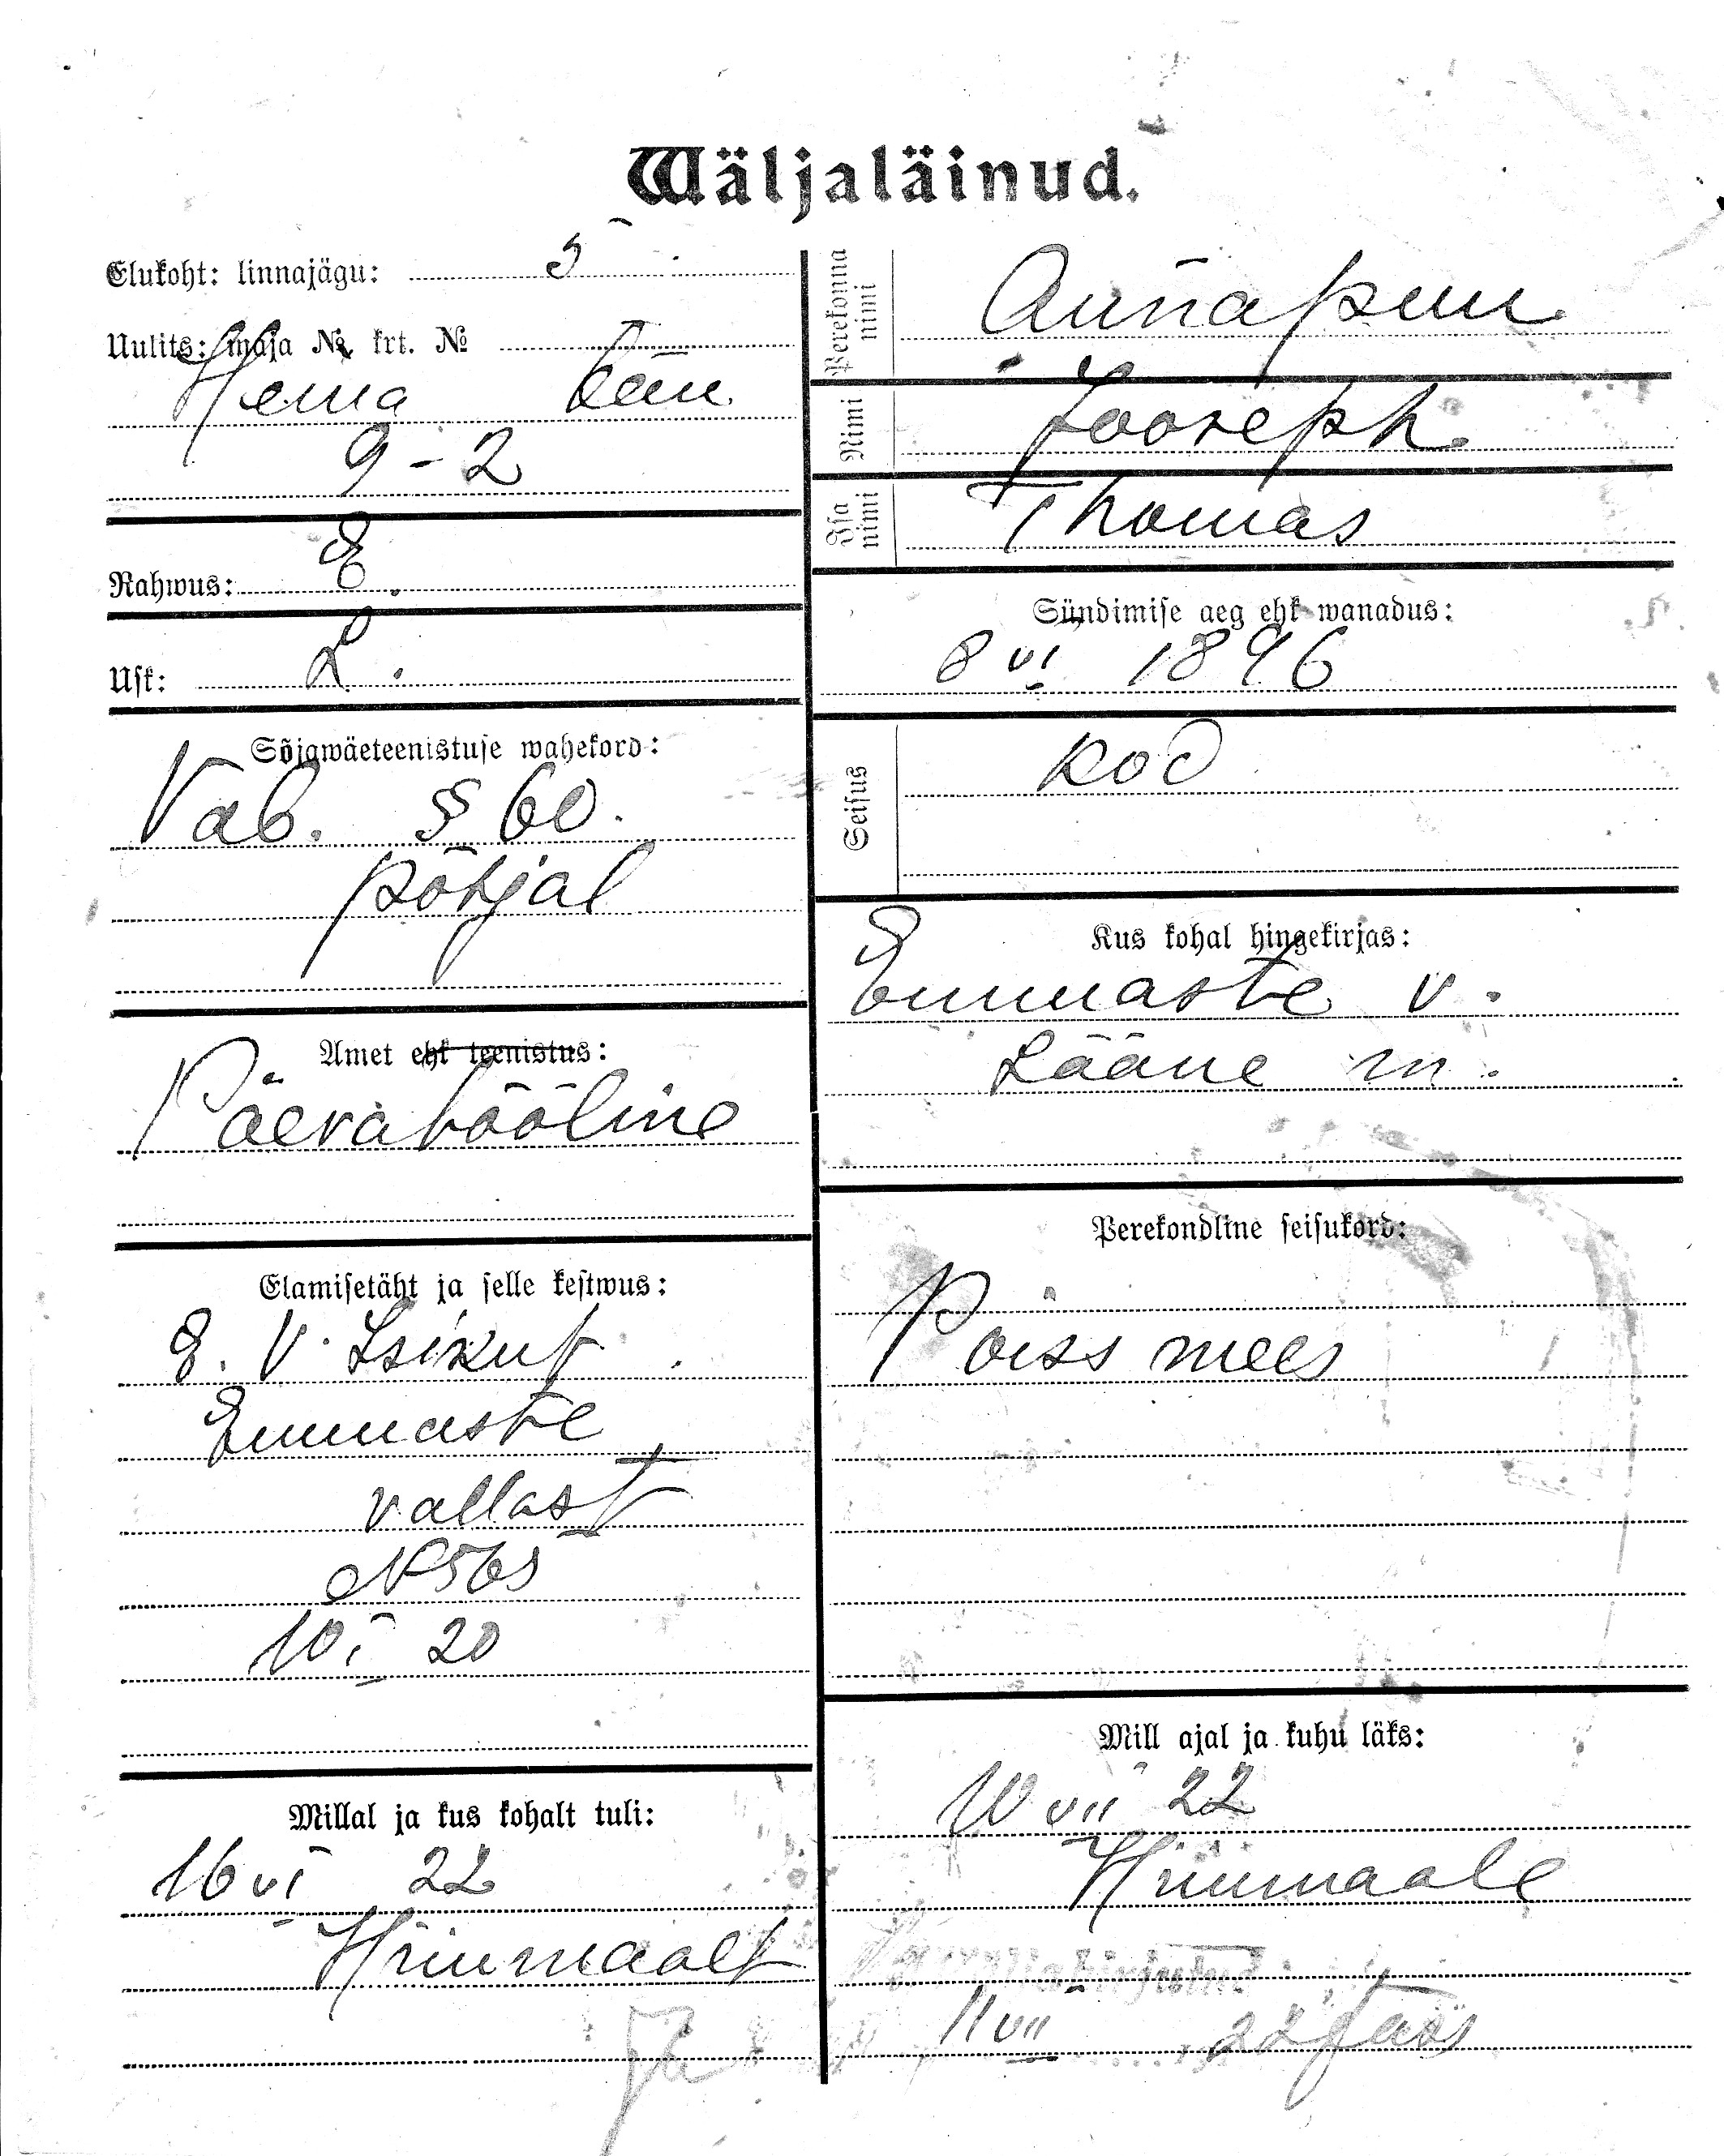 Wäljaläinud.
Elukoht: linnajägu: 5
Uulits: maja № krt. №
Herna tän
9-2
Rahwus: E.
Usk: L.
Sõjawäeteenistuse wahekord:
Vab. § 60.
põhjal
Amet ehk teenistus:
Päevatööline
Elamisetäht ja selle kestwus:
E. V. Isikut.
Emmaste
vallast
№ 565
10 I 20
Millal ja kus kohalt tuli:
16 VI 22
Hiiumaalt
Perekonna nimi
Annapuu
Nimi
Jooseph.
Isa nimi
Thomas
Sündimise aeg ehk wanadus:
8 VI 1896
Seisus
kod
Kus kohal hingekirjas:
Emmaste v.
Lääne m.
Perekondline seisukord:
Poissmees
Mill ajal ja kuhu läks:
10 VII 22
Hiiumaale
11 VII 22